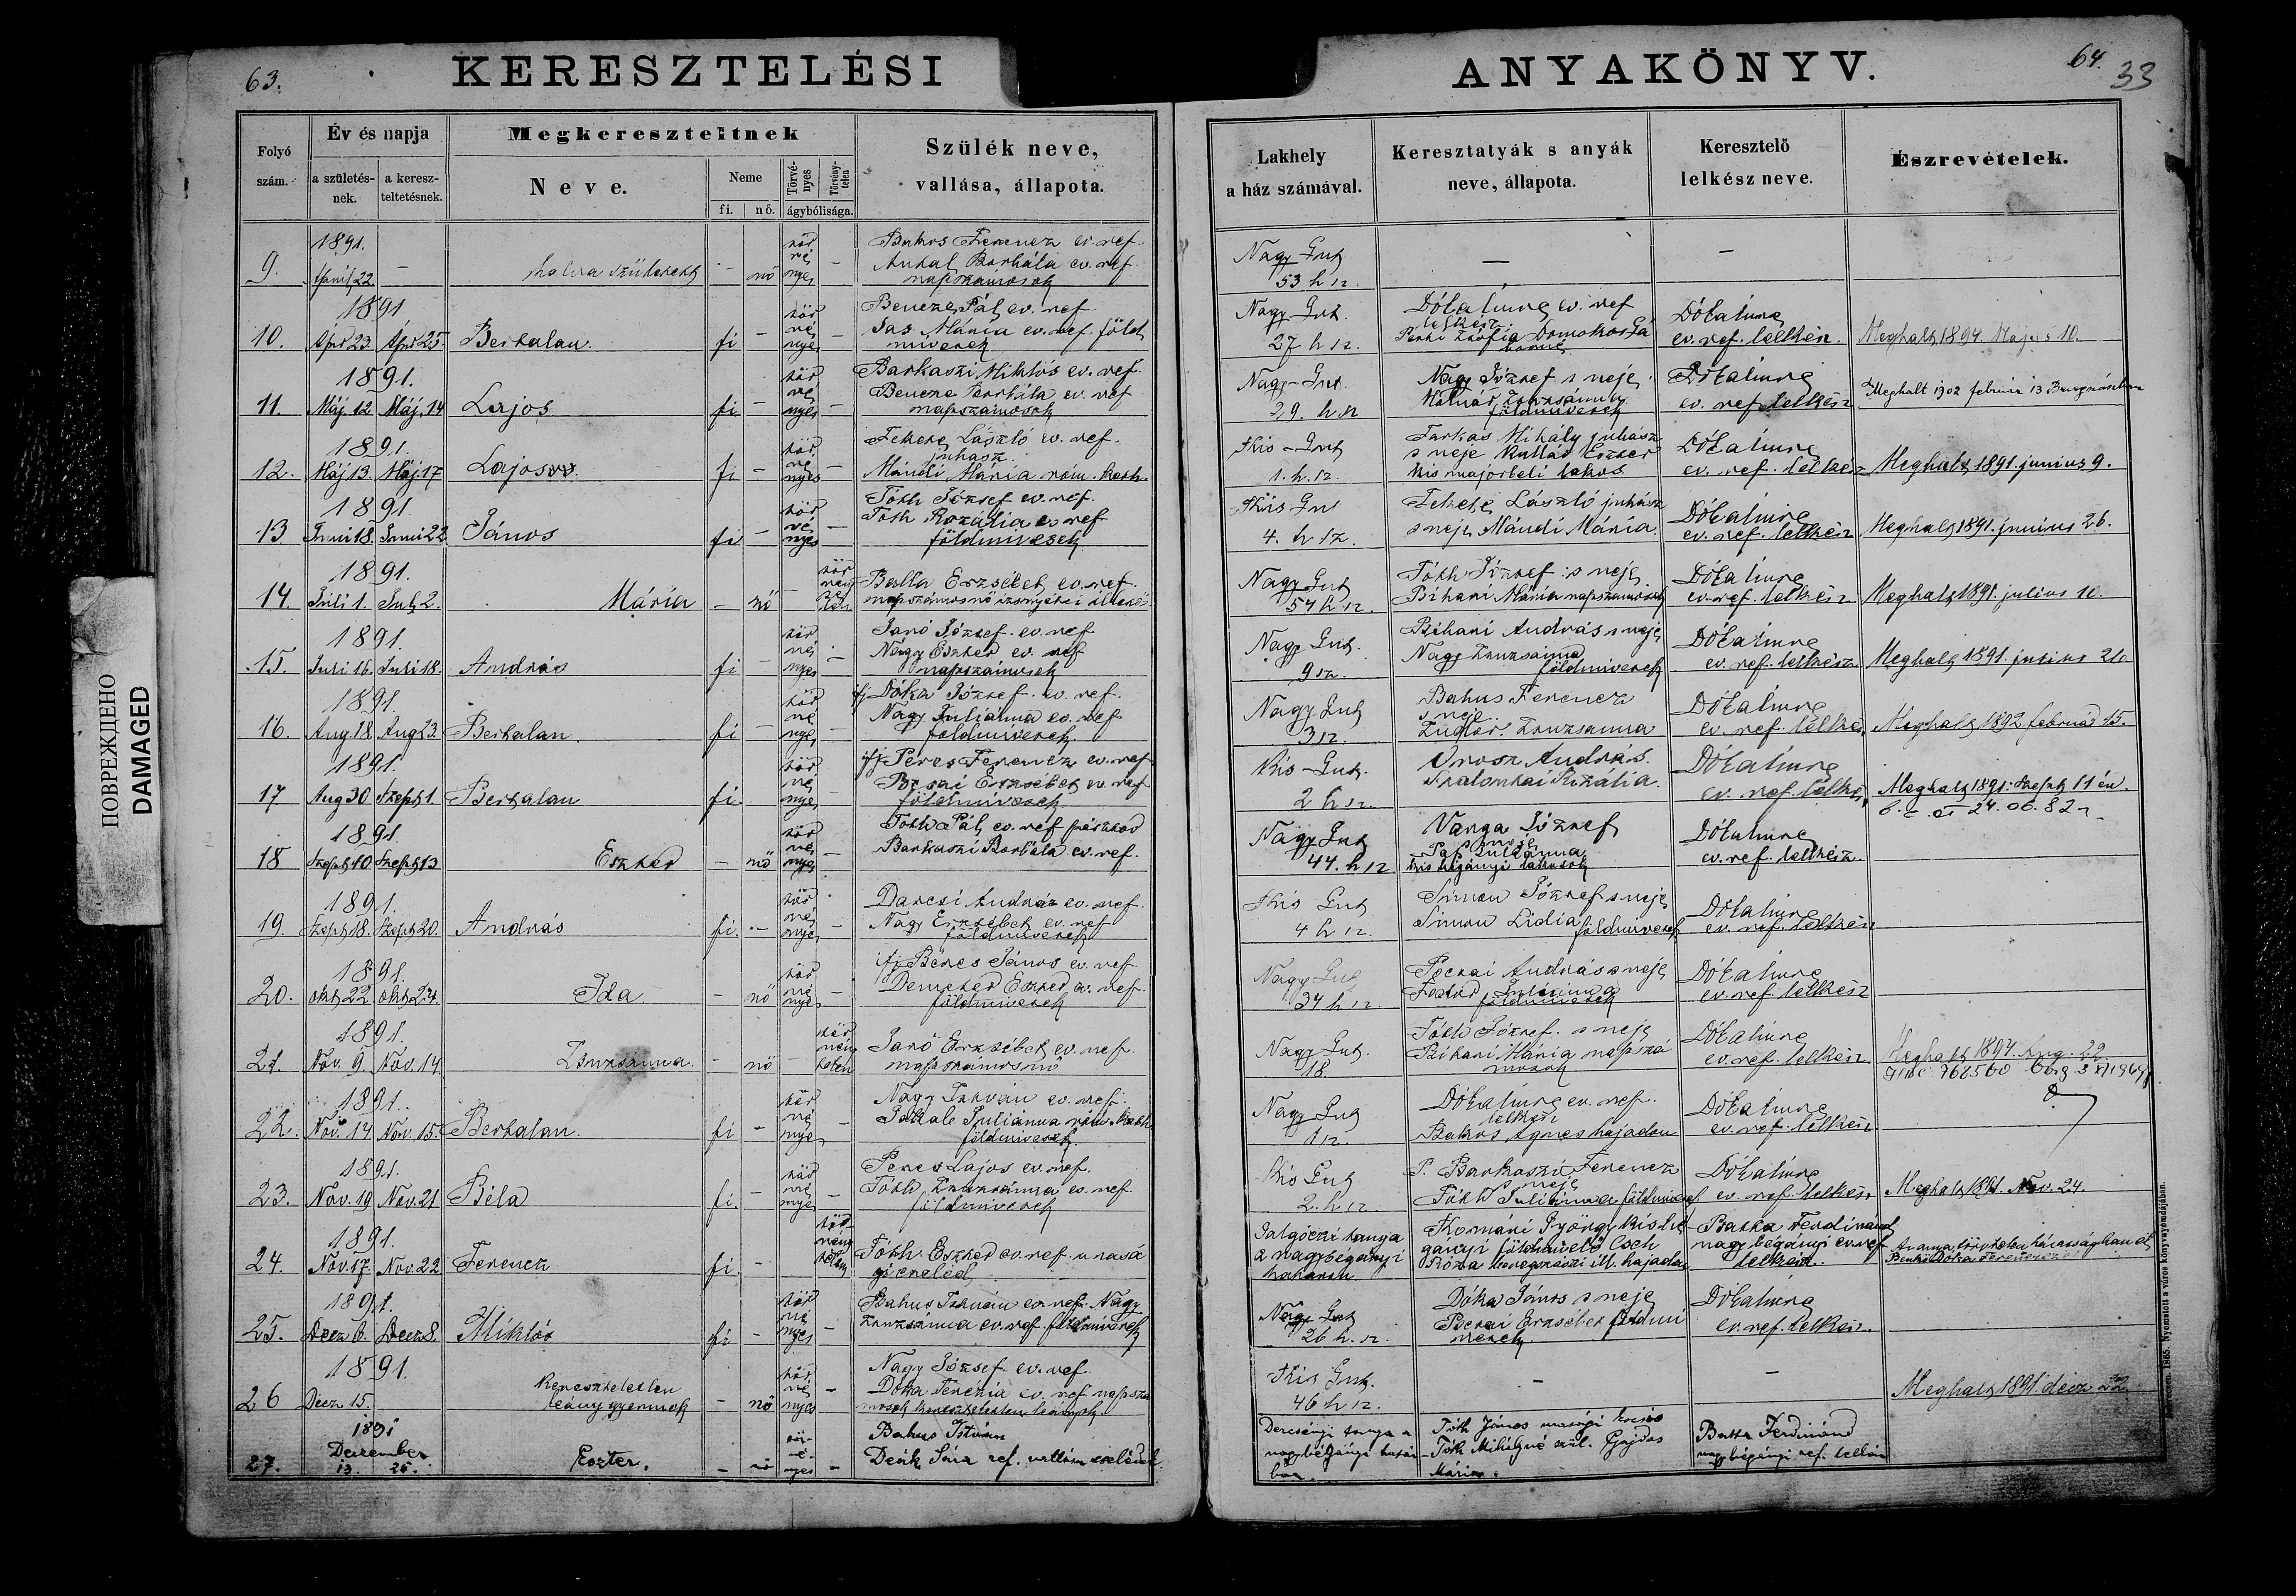 63.
KERESZTELÉSI
ANYAKÖNYV.
64.
33
Folyó szám.
Év és napja
a születés-nek.
a keresz-teltetésnek.
Megkereszteltnek
Neve.
Neme
fi.
nő.
Törvé-nyes
Törvény-telen
ágybólisága.
Szülék neve,
vallása, állapota.
Lakhely
a ház számával.
Keresztatyák s anyák
neve, állapota.
Keresztelő
lelkész neve.
Észrevételek.
1891.
9. April 22 – halva született – nő törvényes –
Bakos Ferencz ev. ref.
Antal Borbála ev. ref.
napszámosok
Nagy Gut
53 h sz.
1891
10. Apr 23. Apr 25. Bertalan fi – törvényes –
Bencze Pál ev. ref.
Pas Mária ev. ref. föld
mivesek
Nagy Gut.
27. h sz.
Dóka Imre ev. ref
lelkész
Dóka Imre
ev. ref. lelkész.
Meghalt 1894. Május 10.
1891.
11. Máj. 12 Máj. 14 Lajos fi – törvényes –
Barkaszi Miklós ev. ref.
Bencze Borbála ev. ref
napszámosok
Nagy-Gut.
29. h sz
Nagy József s neje
Molnár Zsuzsánna
földmivesek
Dóka Imre
ev. ref. lelkész
Meghalt 1902 február 13
1891.
12. Máj 13. Máj. 17 Lajos fi – törvényes –
Fekete László ev. ref.
juhász
Mándi Mária róm. kath.
Kis-Gut
1. h. sz.
Farkas Mihály juhász
s neje Kallás Eszter
Kis majorbeli lakos
Dóka Imre
ev. ref. lelkész
Meghalt 1891. junius 9.
1891
13 Juni 18. Juni 22 János fi – törvényes –
Tóth József ev. ref.
Tóth Rozália ev ref
földmivesek
Kis Gut
4. h sz.
Fekete László juhász
s neje Mándi Mária.
Dóka Imre
ev. ref. lelkész
Meghalt 1891. junius 26.
1891.
14. Juli 1. Juli 2. Mária – nő – törvénytelen
Balla Erzsébet ev. ref.
napszámosnő
Nagy Gut
54 h sz.
Tóth József s neje
Bihari Mária napszámosok
Dóka Imre
ev. ref. lelkész
Meghalt 1891. julius 10.
1891.
15. Juli 16. Juli 18. András fi – törvényes –
Janó József ev. ref
Nagy Eszter ev. ref
napszámosok
Nagy Gut.
9 sz.
Bihari András s neje
Nagy Zsuzsánna
földmivesek
Dóka Imre
ev. ref. lelkész.
Meghalt 1891. julius 21.
1891.
16. Aug. 18 Aug 23 Bertalan fi – törvényes –
ifj Dóka József ev. ref.
Nagy Juliánna ev. ref
földmivesek.
Nagy Gut
3 sz.
Bakus Ferencz
s neje
Zuglár Zsuzsanna
Dóka Imre
ev. ref. lelkész
Meghalt 1892. február 15.
1891.
17 Aug 30 Szept 1. Bertalan fi. – törvényes –
ifj Peres Ferencz ev. ref
Pocsai Erzsébet ev. ref
földmivesek
Kis-Gut.
2 h sz.
Orosz András.
Szalontai Rozália.
Dóka Imre
ev. ref. lelkész
Meghalt 1891. Szept 11 én.
24. 06. 82
1891.
18 Szept 10 Szept 13 Eszter – nő törvényes –
Tóth Pál ev. ref pásztor
Barkaszi Borbála ev. ref.
Nagy Gut
44. h sz
Varga József
s neje
Pap Juliánna
kis bégányi lakosok
Dóka Imre
ev. ref. lelkész.
1891.
19. Szept 18. Szept 20. András fi. – törvényes –
Darcsi András ev. ref.
Nagy Erzsébet ev. ref
földmivesek
Kis Gut
4 h sz.
Simon József s neje
Simon Lidia földmivesek
Dóka Imre
ev. ref. lelkész
1891.
20. Okt 22 Okt 24. Ida – nő törvényes –
ifj Béres János ev. ref.
Demeter Eszter ev. ref.
földmivesek
Nagy Gut
34 h sz.
Pocsai András s neje
Fodor Juliánna
földmivesek
Dóka Imre
ev. ref. lelkész
1891.
21. Nov. 9 Nov. 14 Zsuzsánna – nő – törvénytelen
Janó Erzsébet ev. ref.
napszámosnő
Nagy Gut.
18.
Tóth József s neje
Bihari Mária napszá
mosok
Dóka Imre
ev. ref. lelkész.
Meghalt 1894. Aug. 22.
1891.
22. Nov. 14 Nov. 15. Bertalan fi – törvényes –
Nagy István ev. ref.
Juliánna róm. kath
földmivesek.
Nagy Gut
1 sz.
Dóka Imre ev. ref.
lelkész
Bakos Ágnes hajadon
Dóka Imre
ev. ref. lelkész
1891.
23. Nov. 19 Nov. 21 Béla fi. – törvényes –
Peres Lajos ev. ref.
Tóth Zsuzsánna ev. ref.
földmivesek
Kis Gut
2. h sz.
P. Barkaszi Ferencz
neje
Tóth Juliánna földmivesek
Dóka Imre
ev. ref. lelkész
Meghalt 1891. Nov. 24.
1891.
24. Nov. 17. Nov. 22 Ferencz fi. – törvénytelen
Tóth Eszter ev. ref. urasá
gi cseléd
tanya
a nagybégányi
határon
Komári György kisbé
gányi földmivelő Cseh
Róza beregszászi ill. hajadon
Batta Ferdinánd
nagybégányi ev. ref
lelkész.
1891.
25. Decz 6. Decz 8. Miklós fi – törvényes –
Bakus István ev. ref. Nagy
Zsuzsánna ev. ref. földmivesek
Nagy Gut
26 h. sz.
Dóka János s neje
Pocsai Erzsébet földmi
vesek.
Dóka Imre
ev. ref. lelkész.
1891.
26 Decz 15. kereszteletlen
leány gyermek – nő törvényes –
Nagy József ev. ref.
Dóka Terézia ev. ref. napszá
mosok kereszteletlen leányok.
Kis Gut.
46 h sz.
Meghalt 1891 decz 22.
1891
Dezember
27. 13. 25. Eszter. – nő törvényes –
Bakus István
Deák Sára ref. vallásu cselédek.
Dercsényi tanya a
nagybégányi határ
ban.
Tóth János urasági kocsis
Tóth Mihályné szül. Gajdos
Mária.
Batta Ferdinánd
nagybégányi ref. lelkész
Debreczen. 1865. Nyomatott a város könyvnyomdájában.
ПОВРЕЖДЕНО
DAMAGED